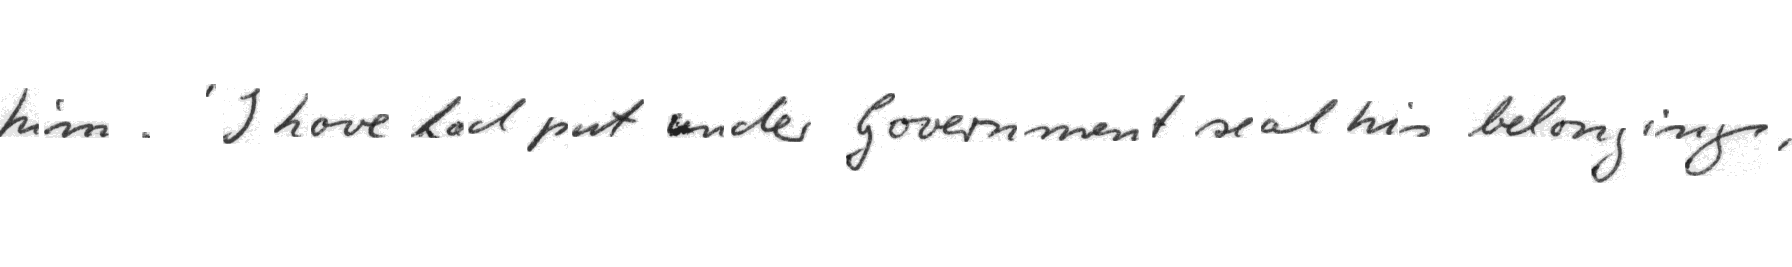 him. 'I have had put under Government seal his belongings,